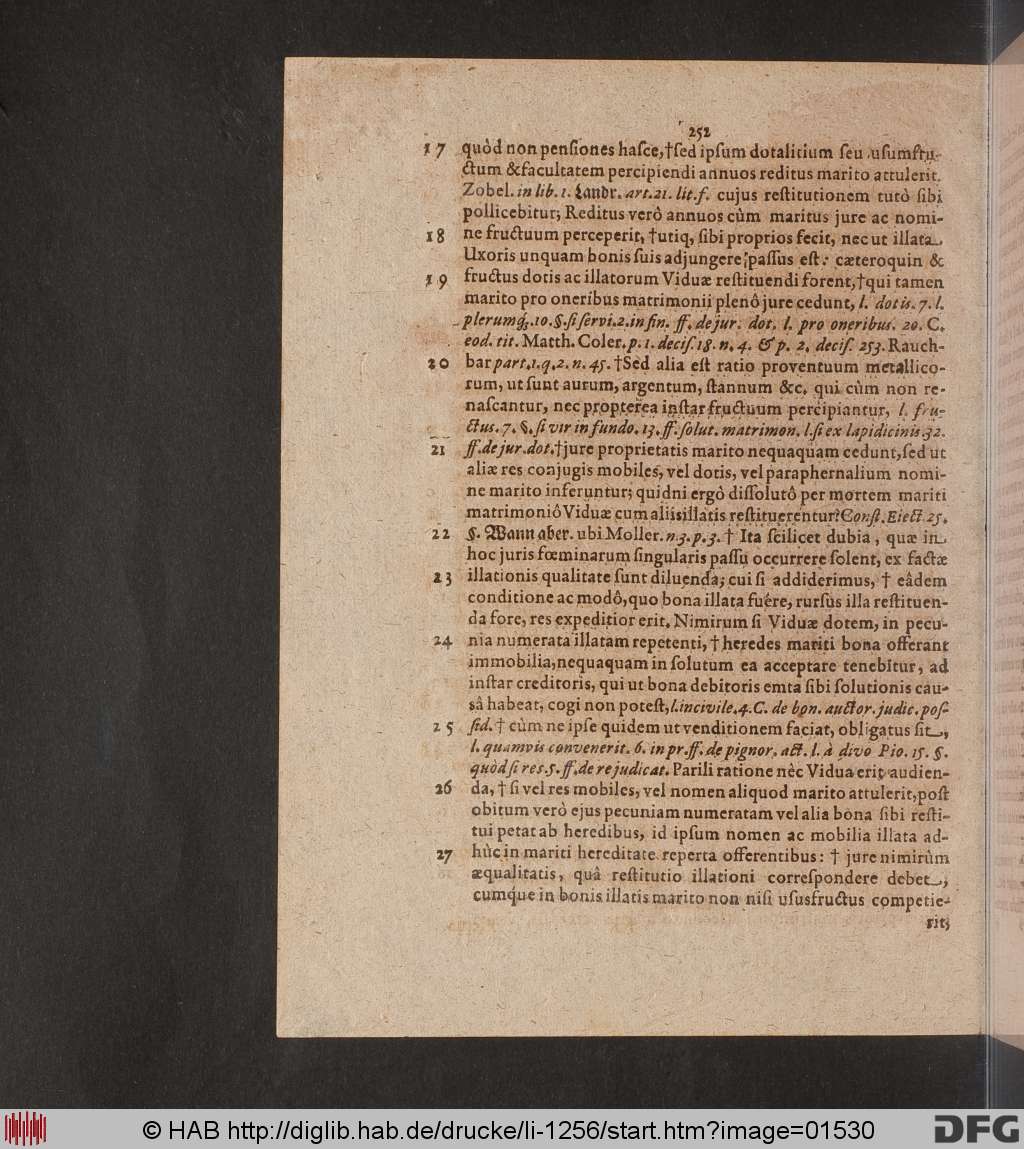 252
17 quòd non pensiones hasce, †sed ipsum dotalitium seu usumfru-
ctum & facultatem percipiendi annuos reditus marito attulerit.
Zobel. in lib. 1. Landr. art. 21. lit. f. cujus restitutionem tutò sibi
pollicebitur; Reditus verò annuos cùm maritus jure ac nomi-
18 ne fructuum perceperit, †utiq, sibi proprios fecit, nec ut illata
Uxoris unquam bonis suis adjungere passus est: cæteroquin &
19 fructus dotis ac illatorum Viduæ restituendi forent, †qui tamen
marito pro oneribus matrimonii plenô jure cedunt, l. dotis. 7. l.
plerumq́;. 10. §. si servi. 2. in fin. ff. de jur. dot. l. pro oneribus. 20. C.
eod. tit. Matth. Coler. p. 1. decis. 18. n. 4. & p. 2. decis. 253. Rauch-
20 bar part. 1. q. 2. n. 45. †Sed alia est ratio proventuum metallico-
rum, ut sunt aurum, argentum, stannum &c. qui cùm non re-
nascantur, nec propterea instar fructuum percipiantur, l. fru-
ctus. 7. §. si vir in fundo. 13. ff. solut. matrimon. l. si ex lapidicinis 32.
21 ff. de jur. dot. †jure proprietatis marito nequaquam cedunt, sed ut
aliæ res conjugis mobiles, vel dotis, vel paraphernalium nomi-
ne marito inferuntur; quidni ergò dissolutô per mortem mariti
matrimoniô Viduæ cum aliis illatis restituerentur? Const. Elect. 25.
22 §. Wann aber. ubi Moller. n. 3. p. 3. † Ita scilicet dubia, quæ in
hoc juris fœminarum singularis passu occurrere solent, ex factæ
23 illationis qualitate sunt diluenda; cui si addiderimus, † eâdem
conditione ac modô, quo bona illata fuére, rursùs illa restituen-
da fore, res expeditior erit. Nimirum si Viduæ dotem, in pecu-
24 nia numerata illatam repetenti, † heredes mariti bona offerant
immobilia, nequaquam in solutum ea acceptare tenebitur, ad
instar creditoris, qui ut bona debitoris emta sibi solutionis cau-
sâ habeat, cogi non potest, l. incivile. 4. C. de bon. auctor. judic. pos-
25 sid. † cùm ne ipse quidem ut venditionem faciat, obligatus sit,
l. quamvis convenerit. 6. in pr. ff. de pignor. act. l. à divo Pio. 15. §.
quòd si res. 5. ff. de re judicat. Parili ratione nèc Vidua erit audien-
26 da, † si vel res mobiles, vel nomen aliquod marito attulerit, post
obitum verò ejus pecuniam numeratam vel alia bona sibi resti-
tui petat ab heredibus, id ipsum nomen ac mobilia illata ad-
27 hùc in mariti hereditate reperta offerentibus: † jure nimirùm
æqualitatis, quâ restitutio illationi correspondere debet,
cumq́ue in bonis illatis marito non nisi ususfructus competie-
rit;
© HAB http://diglib.hab.de/drucke/li-1256/start.htm?image=01530
DFG